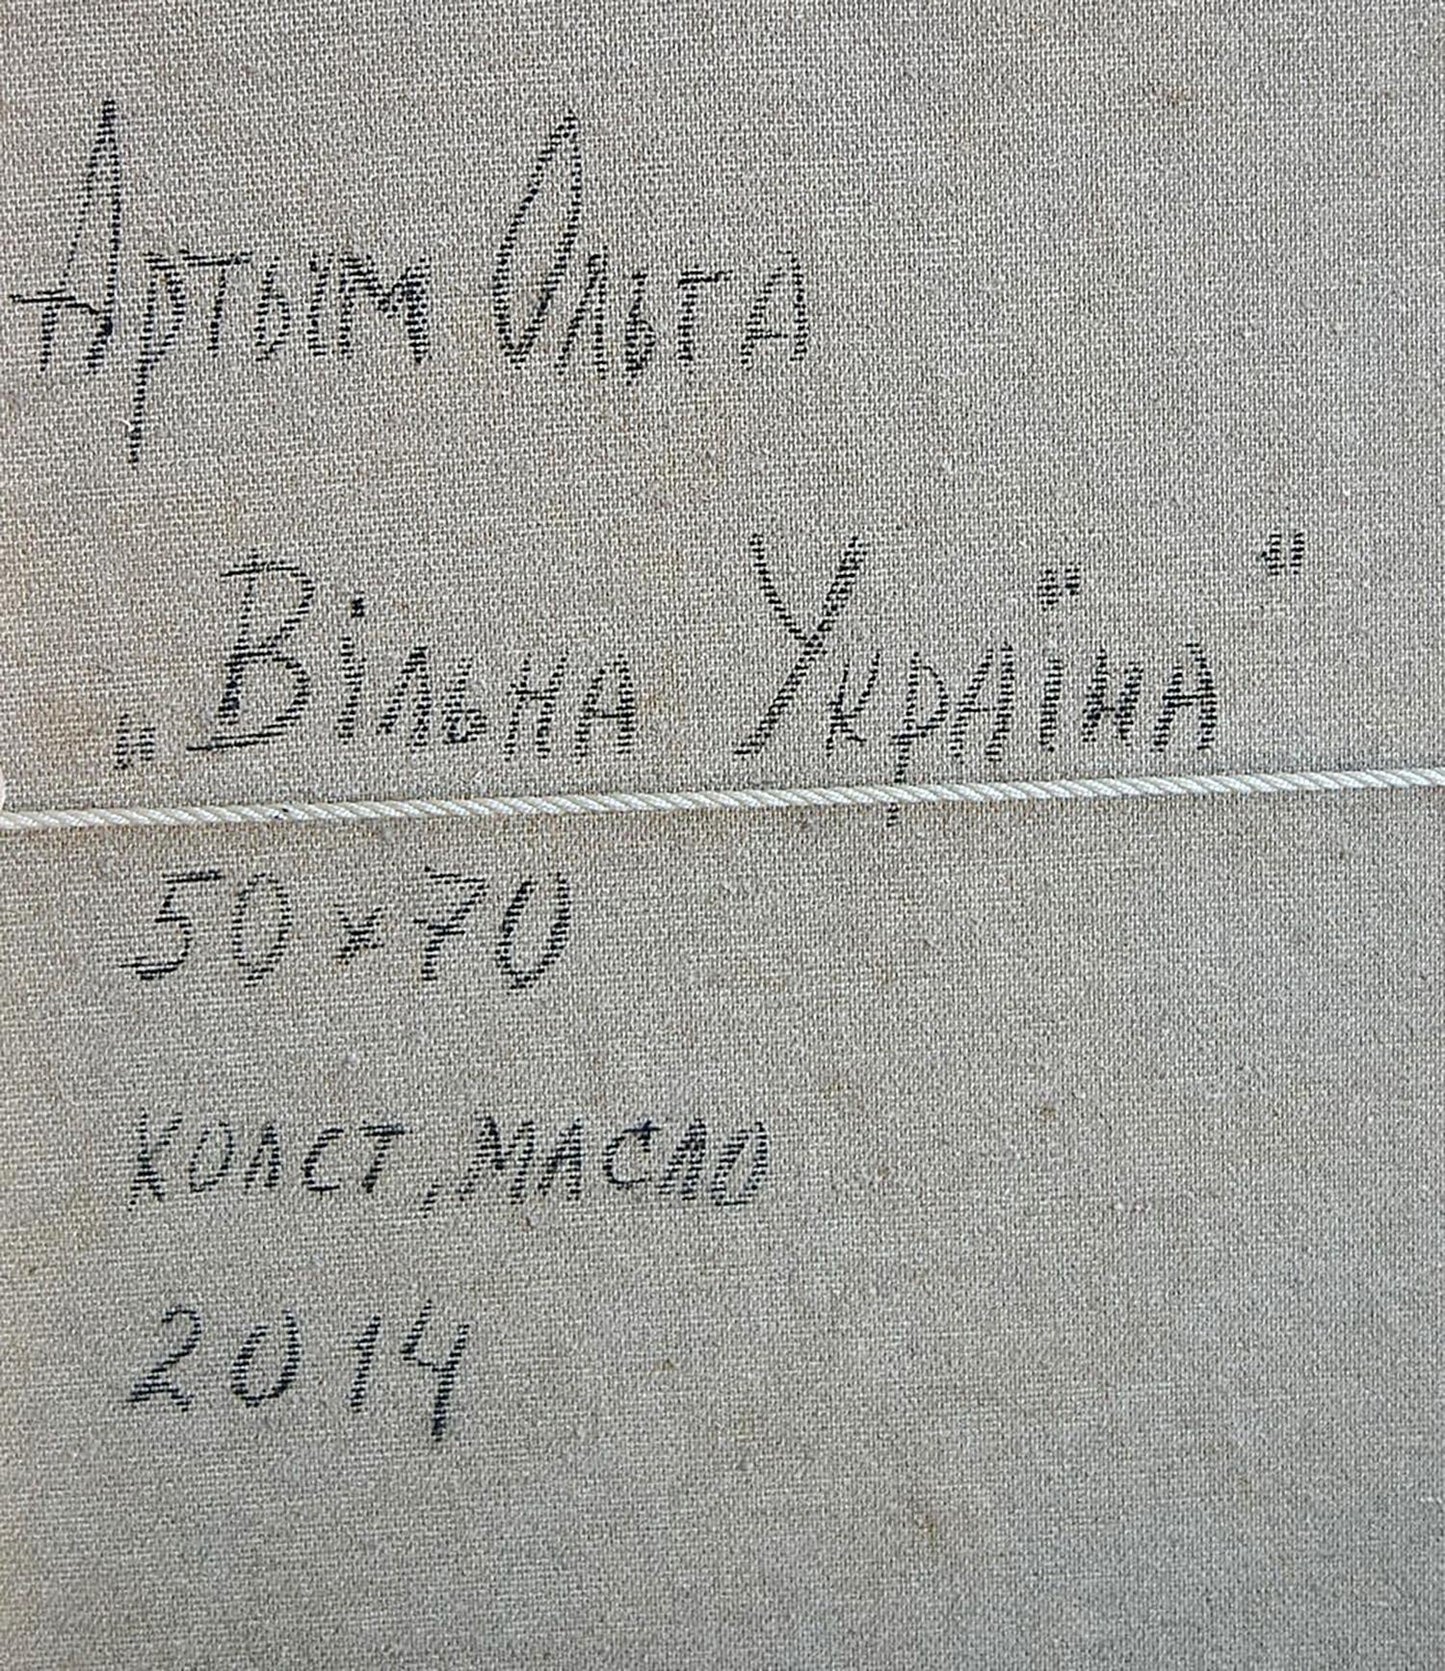 Артым Ольга
„Вільна Україна"
50×70
холст, масло
2014